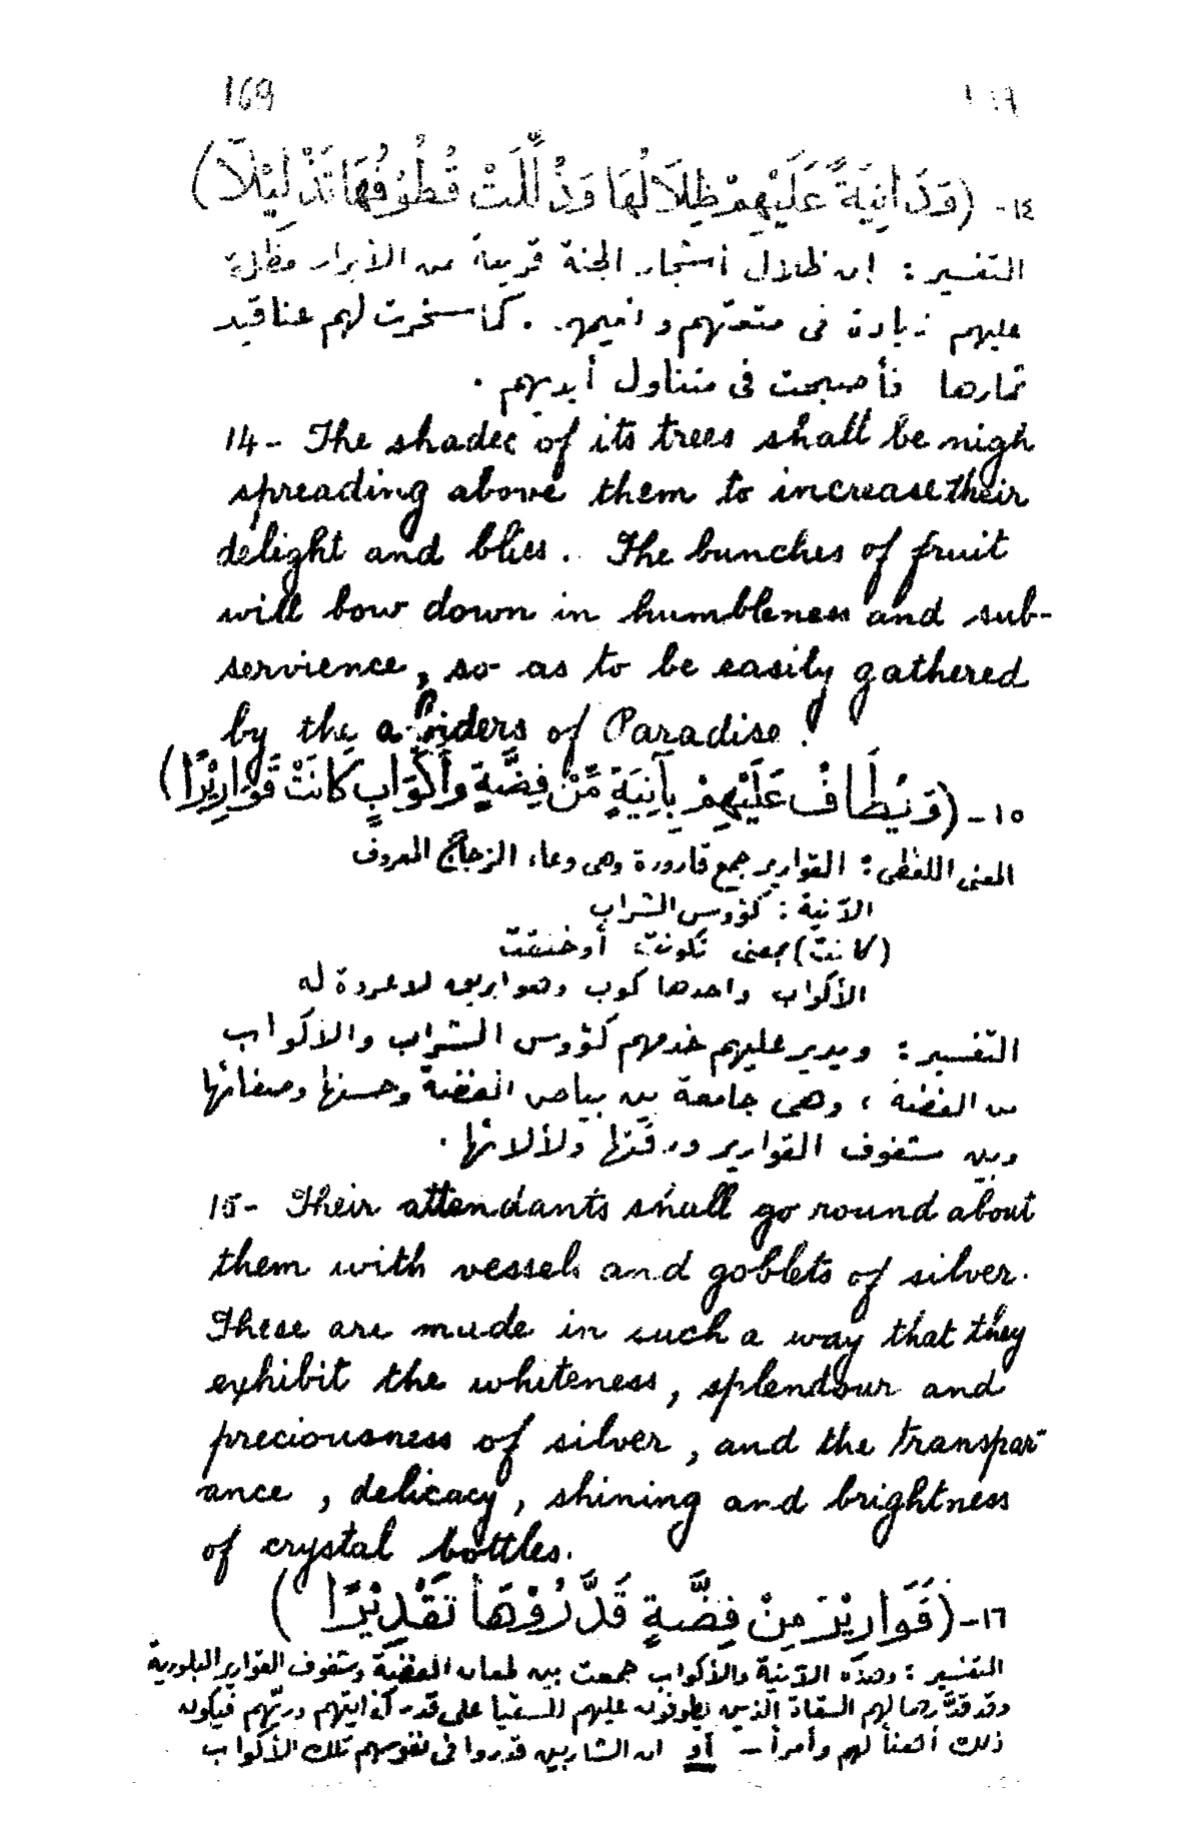 169 ١٦٩
١٤- (وَدَانِيَةً عَلَيْهِمْ ظِلَالُهَا وَذُلِّلَتْ قُطُوْفُهَا تَذْلِيْلًا)
التفسير : إن ظلال أشجار الجنة قريبة من الأبرار مظلة
عليهم زيادة في متعتهم ونعيمهم . كما سخرت لهم عناقيد
ثمارها فأصبحت في متناول أيديهم .
14- The shades of its trees shall be nigh
spreading above them to increase their
delight and bliss. The bunches of fruit
will bow down in humbleness and sub-
servience, so as to be easily gathered
by the abiders of Paradise.
١٥- (وَيُطَافُ عَلَيْهِمْ بِآنِيَةٍ مِّنْ فِضَّةٍ وَأَكْوَابٍ كَانَتْ قَوَارِيْرًا)
المعنى اللفظي : القوارير جمع قارورة وهي وعاء الزجاج المعروف
الآنية : كؤوس الشراب
(كانت) بمعنى تكونت أو خلقت
الأكواب واحدها كوب وهو ابريق لا عروة له
التفسير : ويدير عليهم خدمهم كؤوس الشراب والأكواب
من الفضة ، وهي جامعة بين بياض الفضة وحسنها وصفائها
وبين شفوف القوارير ورقتها ولألائها .
15- Their attendants shall go round about
them with vessels and goblets of silver.
These are made in such a way that they
exhibit the whiteness, splendour and
preciousness of silver, and the transpar-
ance, delicacy, shining and brightness
of crystal bottles.
١٦- (قَوَارِيْرَ مِنْ فِضَّةٍ قَدَّرُوْهَا تَقْدِيْرًا )
التفسير : وهذه الآنية والأكواب جمعت بين لمعان الفضة وشفوف القوارير البلورية
وقد قدَّرها لهم السقاة الذين يطوفون عليهم للسقيا على قدر كفايتهم وريّهم فيكون
ذلك أهنأ لهم وأمرأ - أو ان الشاربين قدروا في نفوسهم تلك الأكواب